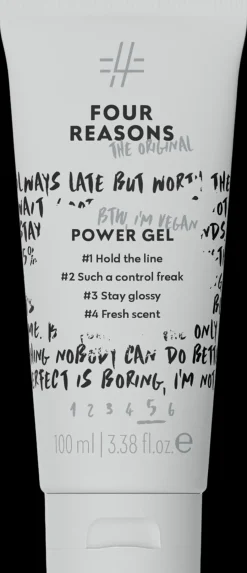 #
FOUR
REASONS
THE ORIGINAL
LWAYS LATE BUT WORTH THE
WAIT
BTW I'M VEGAN
STAY
POWER GEL
#1 Hold the line
#2 Such a control freak
#3 Stay glossy
#4 Fresh scent
ME. ONLY
NOBODY CAN DO BETT
RFECT IS BORING, I'M NOT
1 2 3 4 5 6
100 ml | 3.38 fl.oz. e